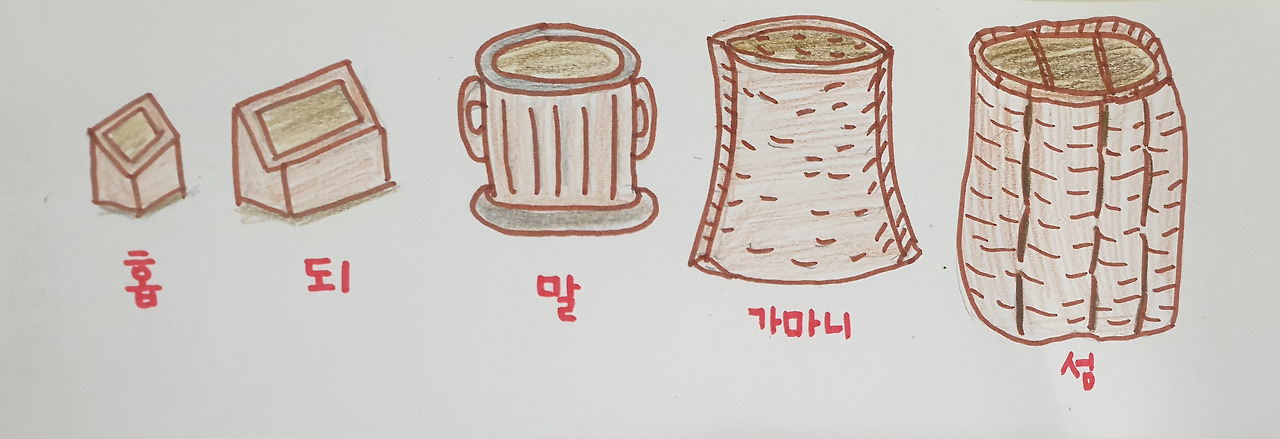 홉
되
말
가마니
섬